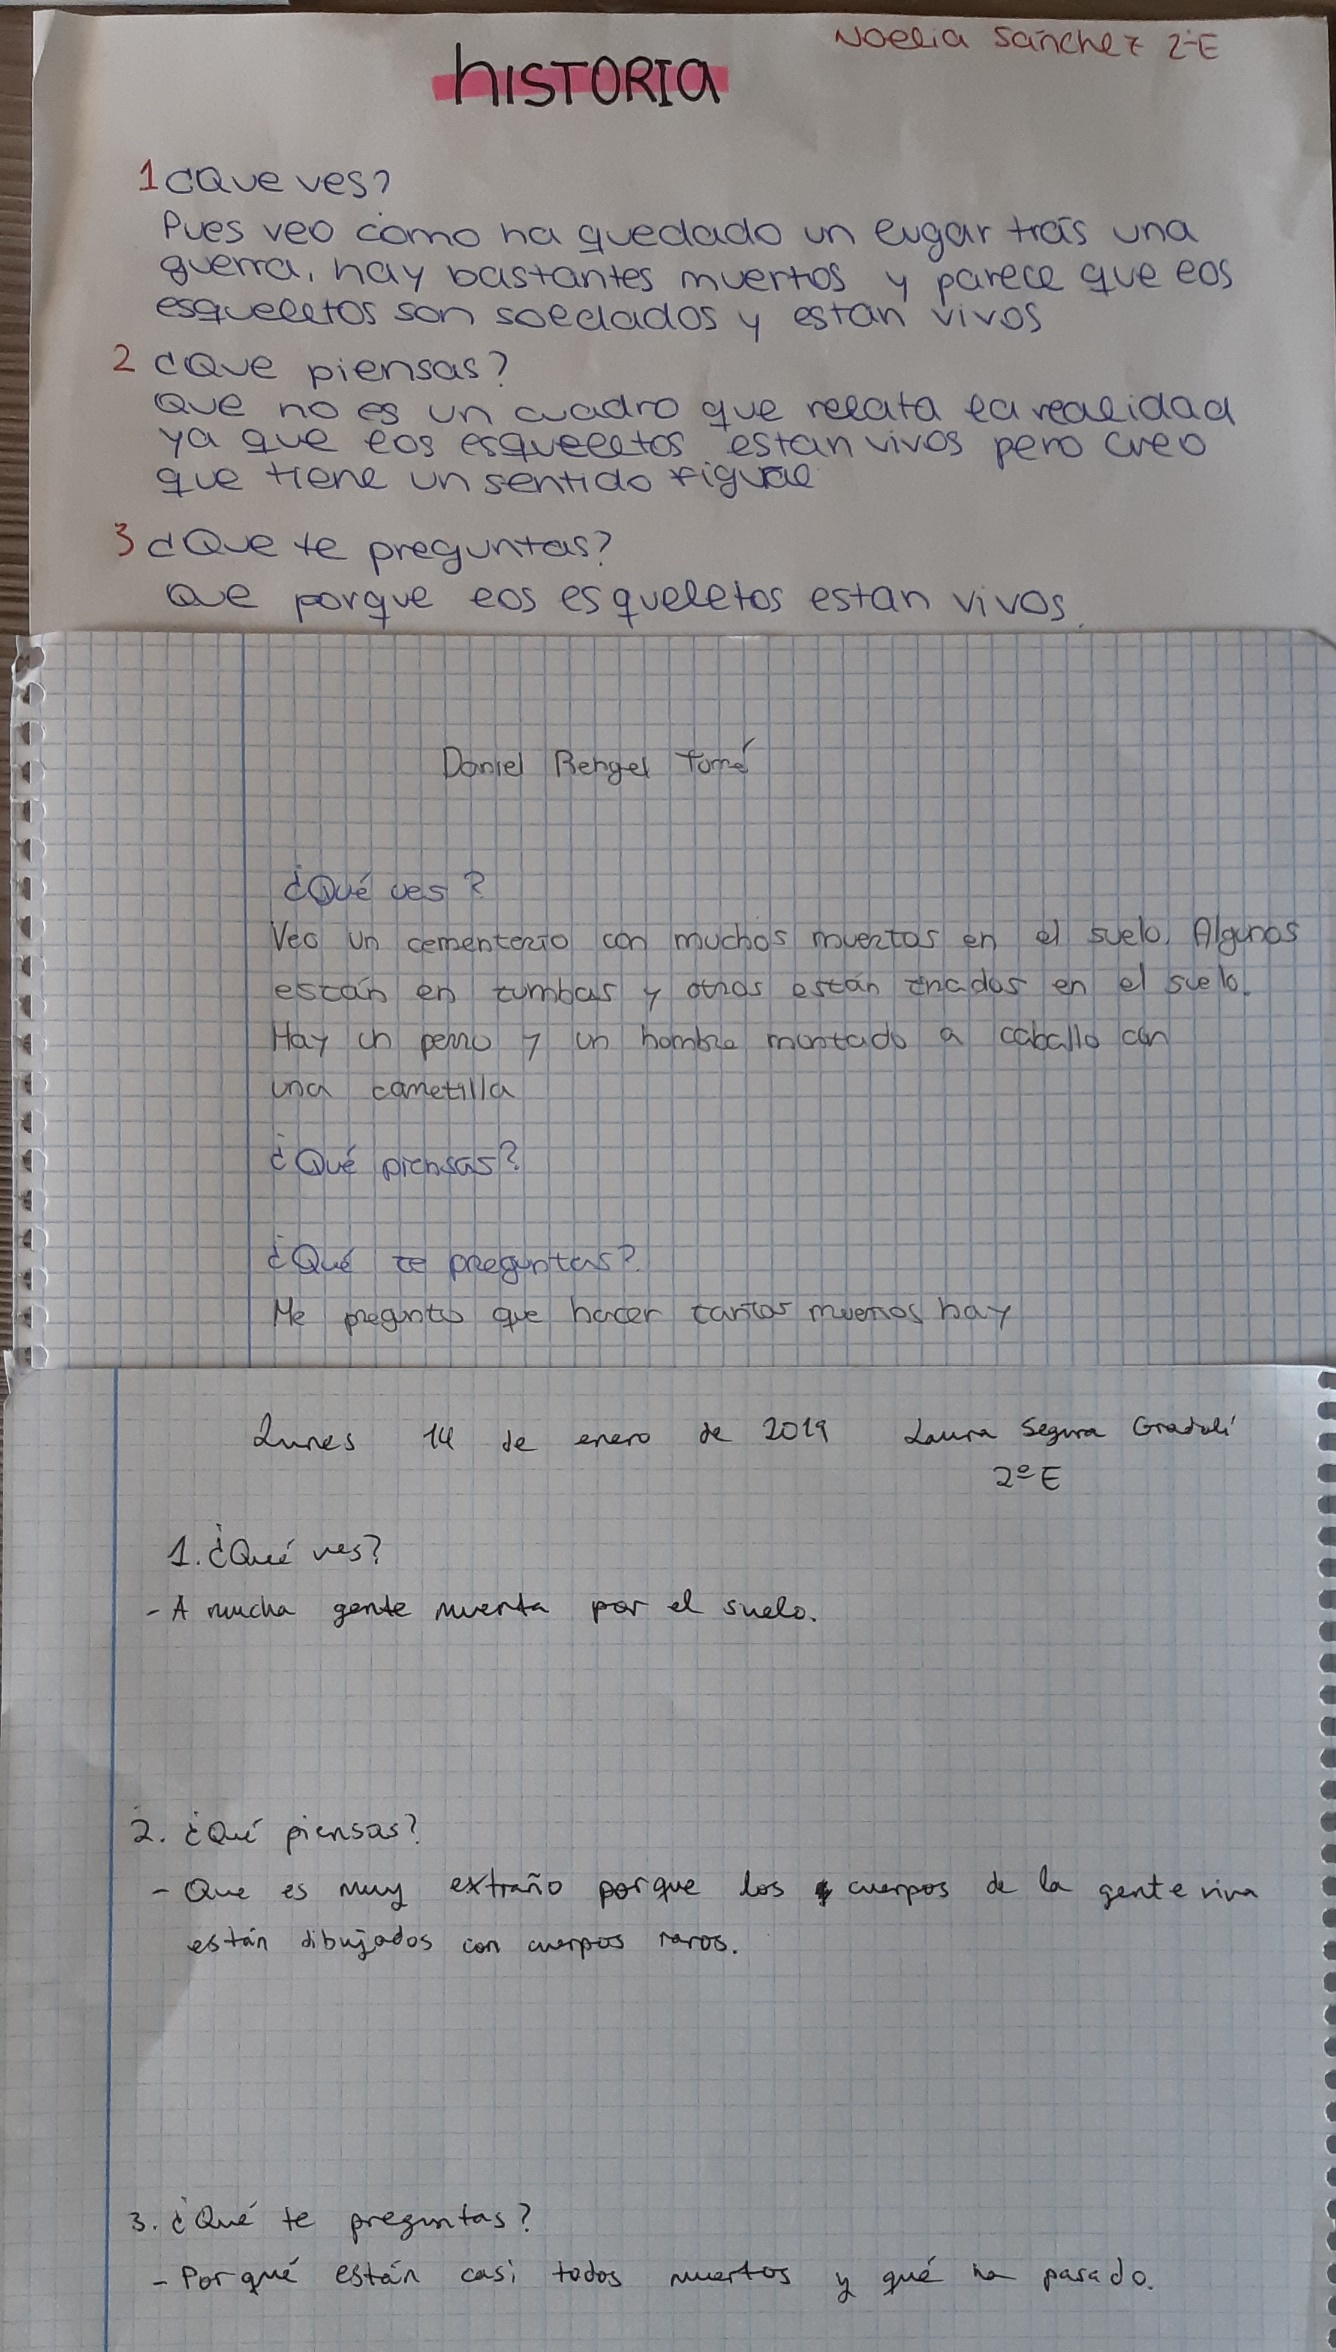 Noelia Sánchez 2ºE
hISTORIA
1 ¿Que ves?
Pues veo como ha quedado un lugar trás una
guerra, hay bastantes muertos y parece que los
esqueletos son soldados y estan vivos
2 ¿Que piensas?
Que no es un cuadro que relata la realidad
ya que los esqueletos estan vivos pero creo
que tiene un sentido figual
3 ¿Que te preguntas?
Que porque los esqueletos estan vivos.
Daniel Rengel Tomé
¿Qué ves?
Veo un cementerio con muchos muertos en el suelo. Algunos
están en tumbas y otros están tirados en el suelo.
Hay un perro y un hombre montado a caballo con
una carretilla
¿Qué piensas?
¿Qué te preguntas?
Me pregunto que hacer tantos muertos hay
Lunes 14 de enero de 2019 Laura Segura Gradolí
2º E
1. ¿Qué ves?
- A mucha gente muerta por el suelo.
2. ¿Qué piensas?
- Que es muy extraño porque los cuerpos de la gente viva
están dibujados con cuerpos raros.
3. ¿Qué te preguntas?
- Por qué están casi todos muertos y qué ha pasado.